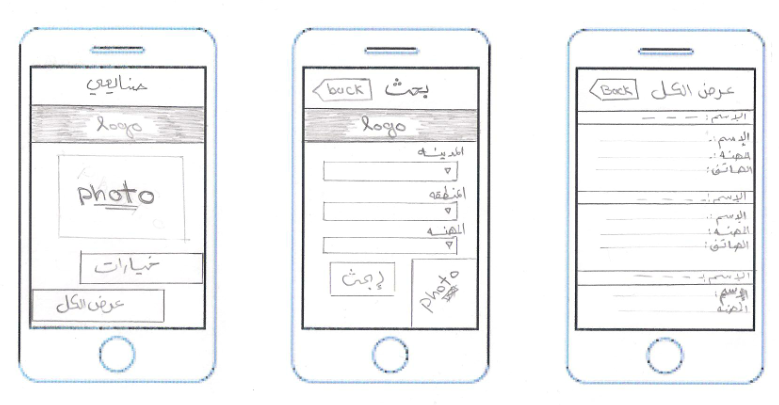 صنايعي
logo
photo
خيارات
عرض الكل
back
بحث
logo
المدينه
المنطقه
المهنه
إبحث
photo
Back
عرض الكل
الإسم: - - -
الإسم:
المهنه:
الهاتف:
الإسم: - - - -
الإسم:
المهنه:
الهاتف:
الإسم: - - - -
الإسم:
المهنه